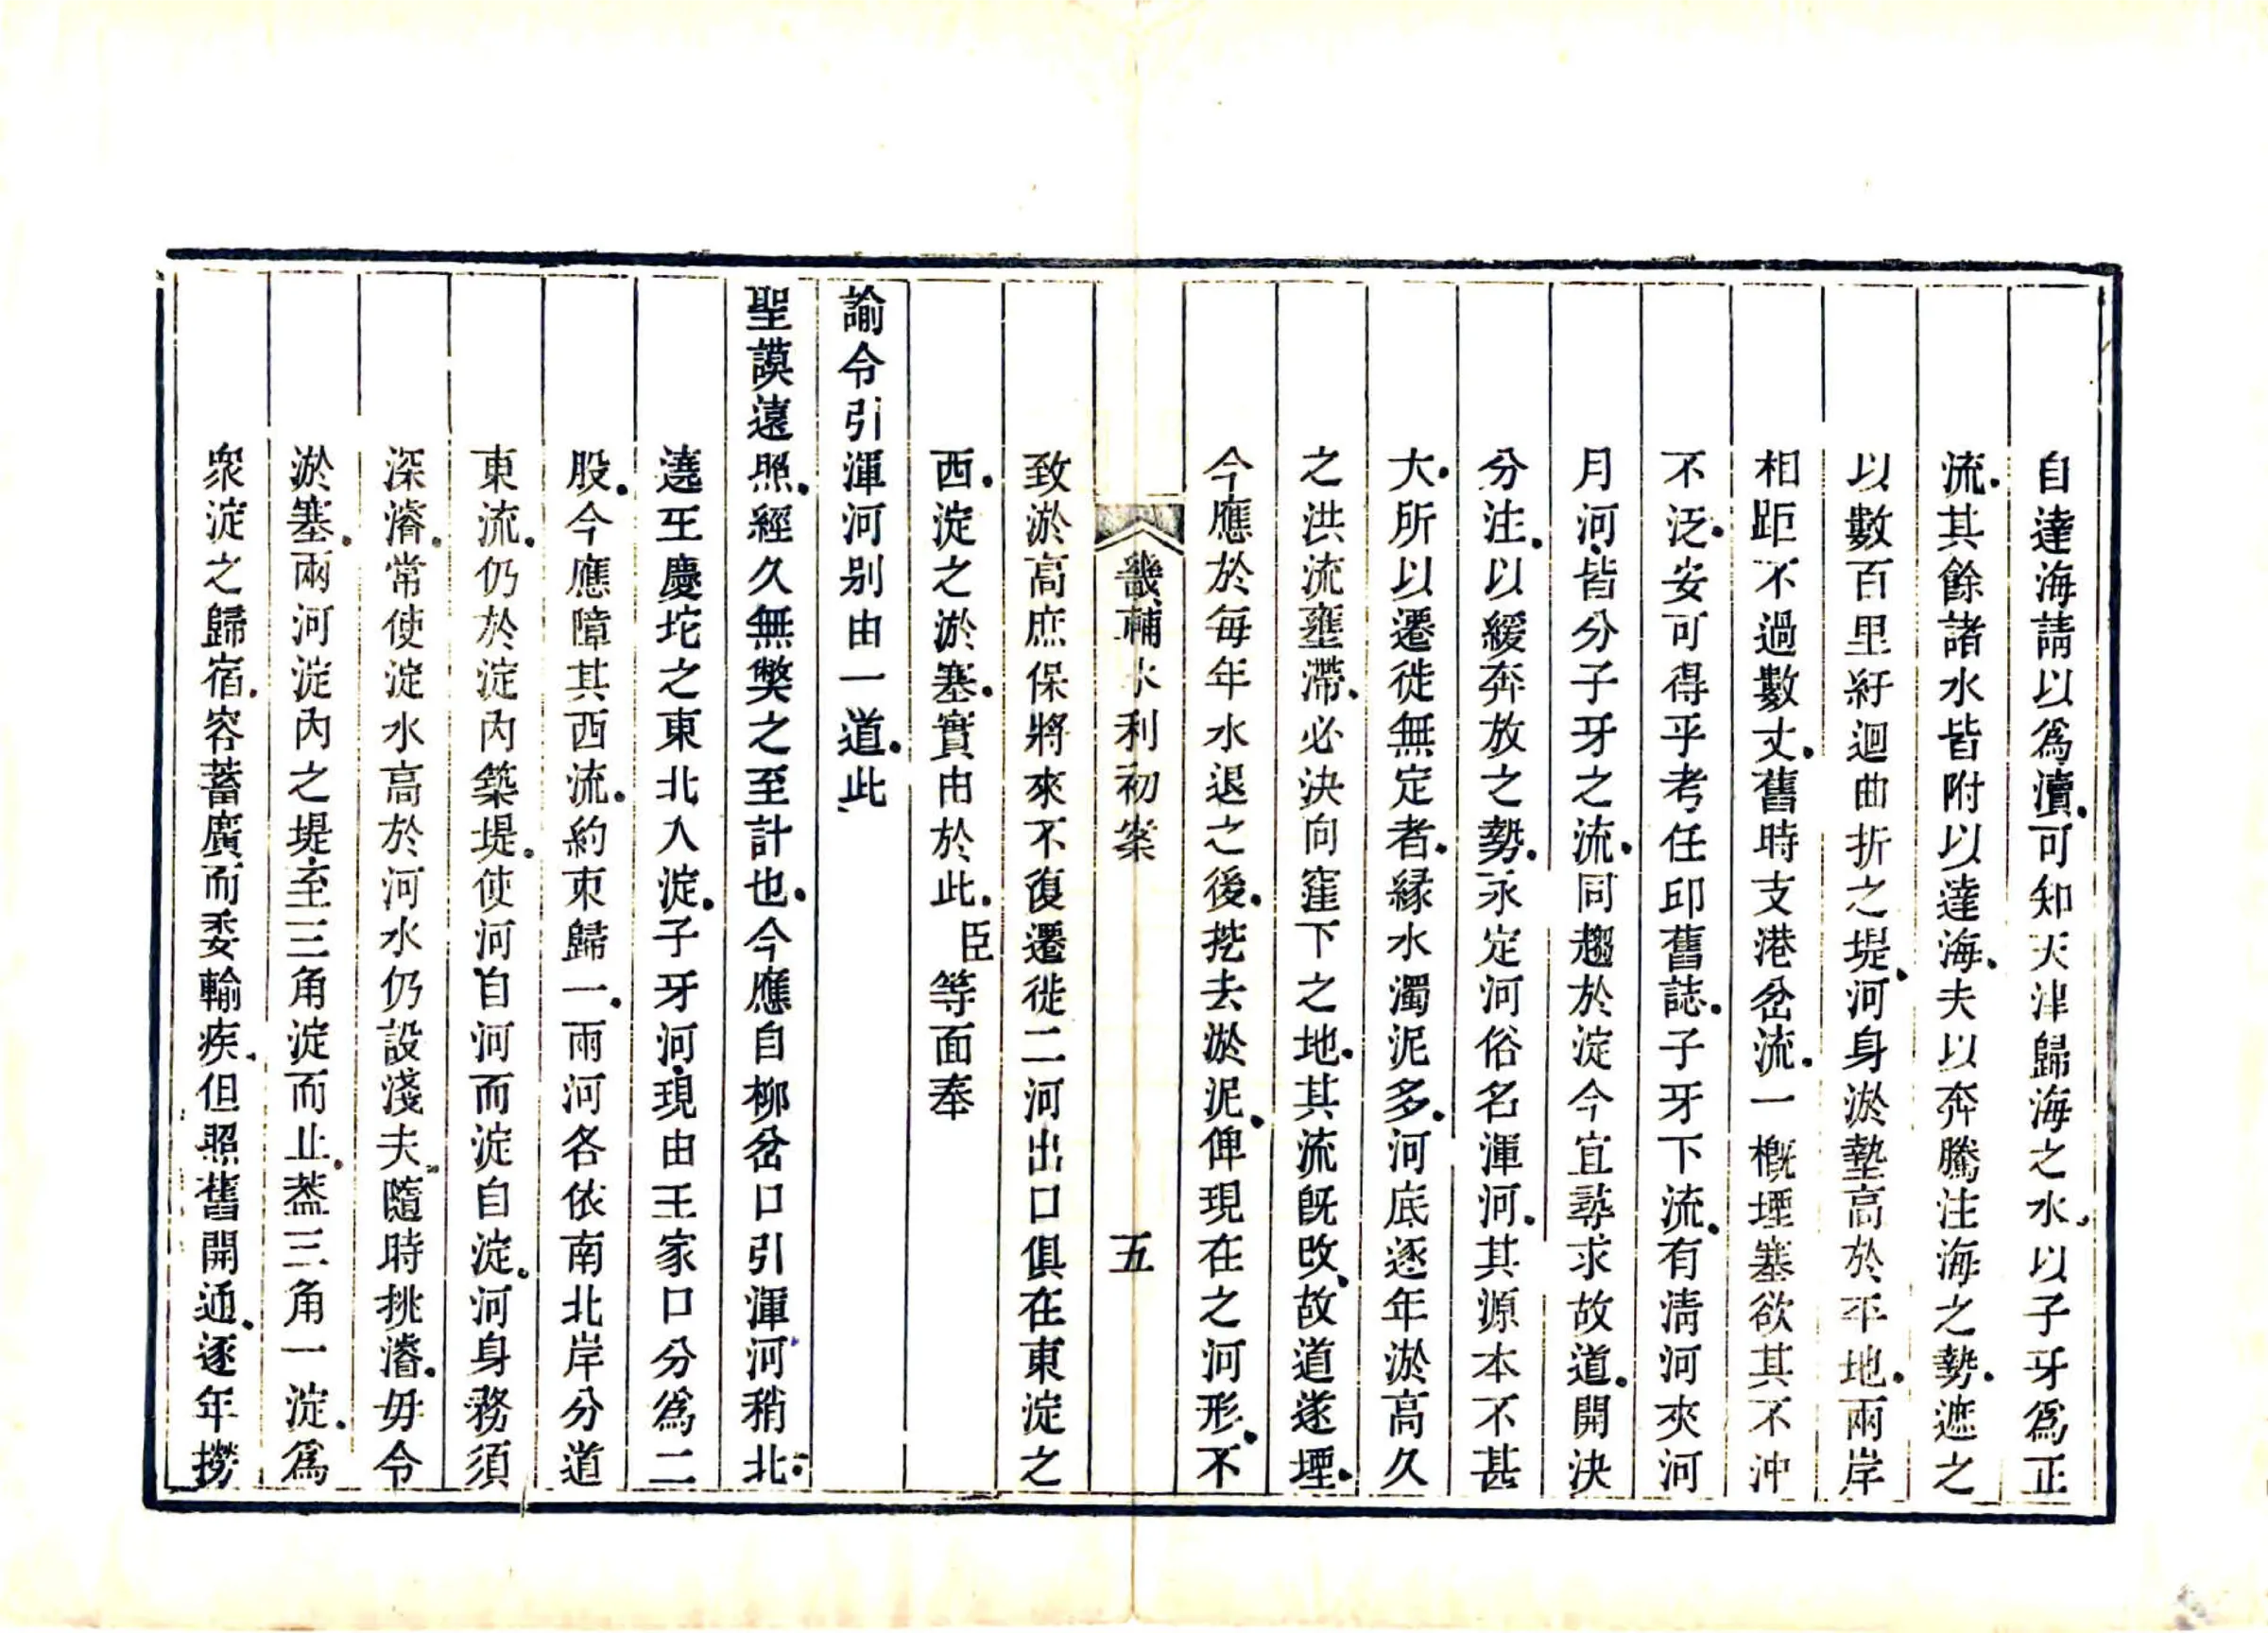 自達海請以爲瀆可知天津歸海之水以子牙爲正
流其餘諸水皆附以達海夫以奔騰注海之勢遮之
以數百里紆迴曲折之堤河身淤墊高於平地兩岸
相距不過數丈舊時支港岔流一槪堙塞欲其不沖
不泛安可得乎考任邱舊誌子牙下流有淸河夾河
月河皆分子牙之流同趨於淀今宜尋求故道開決
分注以緩奔放之勢永定河俗名渾河其源本不甚
大所以遷徙無定者緣水濁泥多河底逐年淤高久
之洪流壅滯必決向窪下之地其流旣改故道遂堙
今應於每年水退之後挖去淤泥俾現在之河形不
畿輔水利初案
五
致淤高庶保將來不復遷徙二河出口俱在東淀之
西淀之淤塞實由於此臣等面奉
諭令引渾河别由一道此
聖謨遠照經久無獘之至計也今應自柳岔口引渾河稍北
遶王慶坨之東北入淀子牙河現由王家口分爲二
股今應障其西流約束歸一兩河各依南北岸分道
東流仍於淀內築堤使河自河而淀自淀河身務須
深濬常使淀水高於河水仍設淺夫隨時挑濬毋令
淤塞兩河淀內之堤至三角淀而止葢三角一淀爲
衆淀之歸宿容蓄廣而委輸疾但照舊開通逐年撈